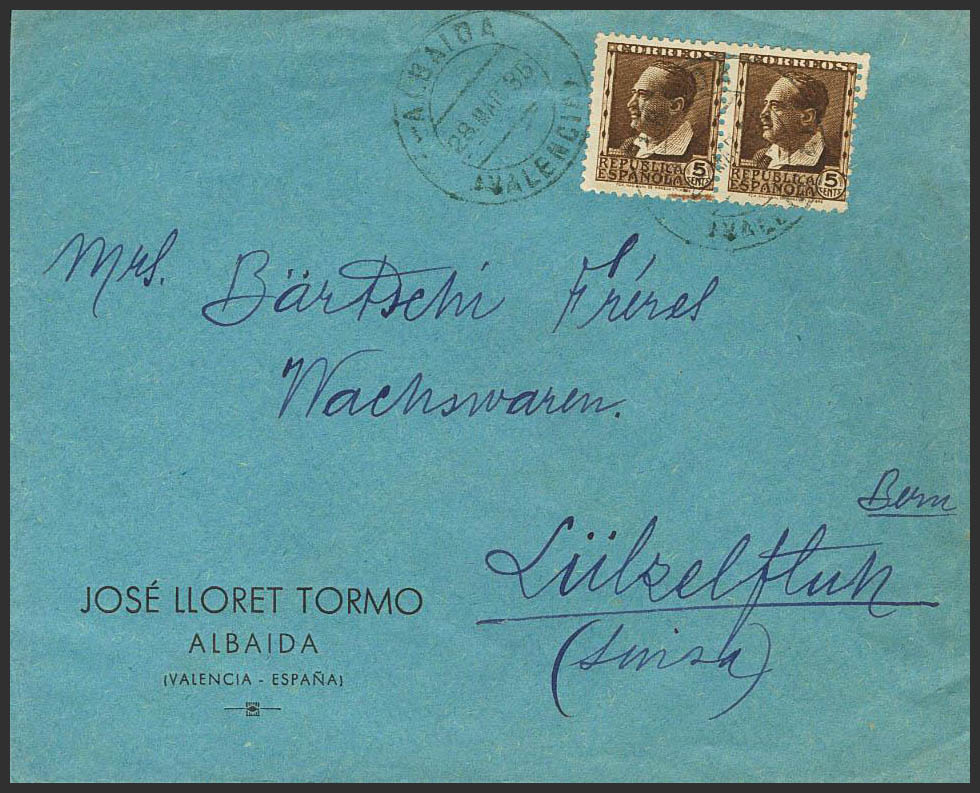 ALBAIDA
28 MAR 36
(VALENCIA)
CORREOS CORREOS
REPUBLICA ESPAÑOLA 5 CENTS
REPUBLICA ESPAÑOLA 5 CENTS
Mrs. Bärtschi Fréres
Wachswaren.
Bern
Lülzelfluh
(Suiza)
JOSÉ LLORET TORMO
ALBAIDA
(VALENCIA - ESPAÑA)